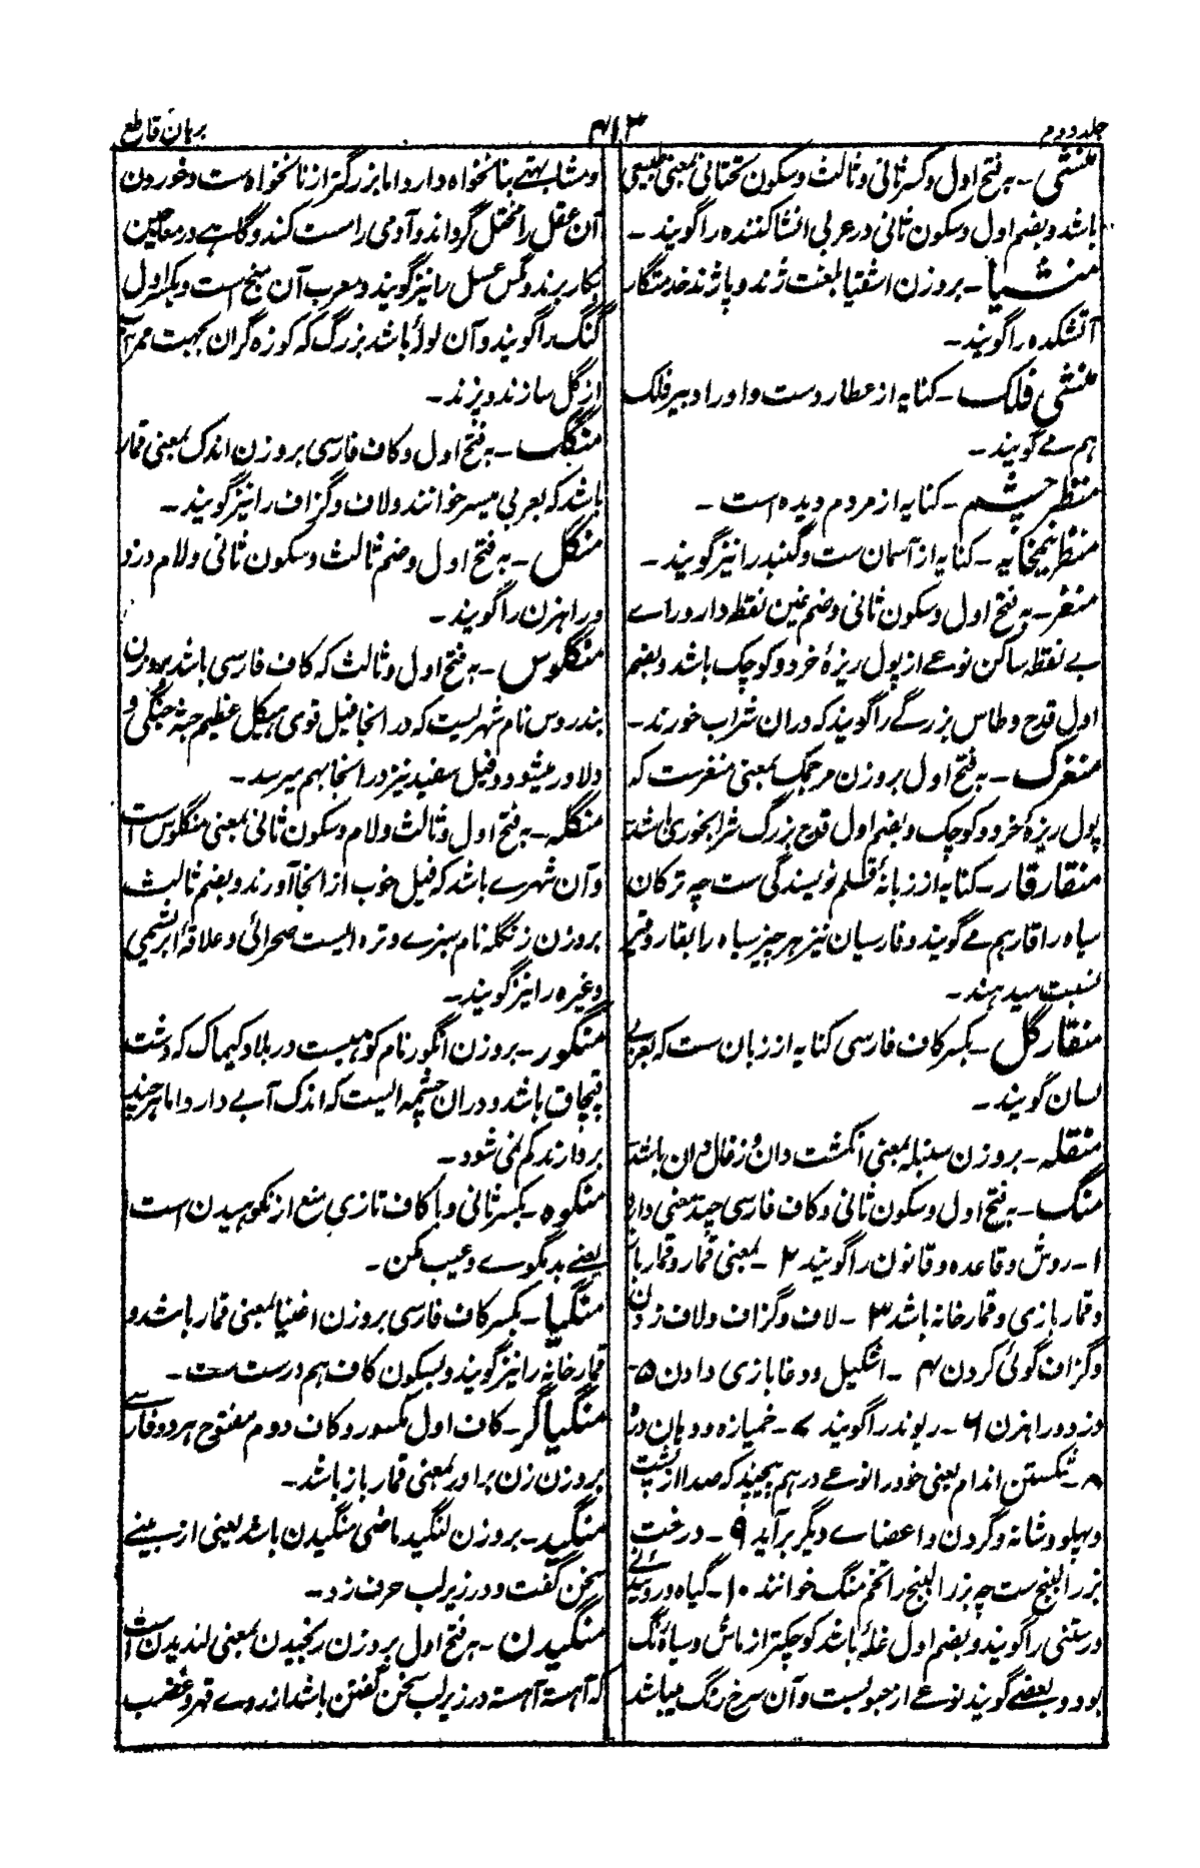 جلد دوم
۴۱۳
برہان قاطع
منشی - بہ فتح اول و کسر ثانی و ثالث و سکون تحتانی بمعنی طبیعی
باشد و بضم اول و سکون ثانی در عربی انشا کنندہ را گویند -
منشیا - بر وزن اشقیا بلغت ژند و پاژند خدمتگار
آتشکدہ را گویند -
منشی فلک - کنایہ از عطاردست و او را دبیر فلک
ہم مے گویند -
منظر چشم - کنایہ از مردم دیدہ است -
منظر نیمخایہ - کنایہ از آسمان ست و گنبد را نیز گویند -
منغر - بہ فتح اول و سکون ثانی و ضم غین نقطہ دار و راے
بے نقطہ ساکن نوعے از پول ریزۂ خرد و کوچک باشد و بضم
اول قدح و طاس بزرگے را گویند کہ دران شراب خورند -
منغرک - بہ فتح اول بر وزن مرجمک بمعنی منغرست کہ
پول ریزۂ خرد و کوچک و بضم اول قدح بزرگ شرابخوری باشد
منقار قار - کنایہ از زبانۂ قلم نویسندگی ست چہ ترکان
سیاہ را قار ہم مے گویند و فارسیان نیز ہر چیز سیاہ را بقار و قیر
نسبت میدہند -
منقار گل - بکسر کاف فارسی کنایہ از زبان ست کہ بعربی
لسان گویند -
منقلہ - بر وزن سنبلہ بمعنی انگشت دان و زغال دان باشد
منگ - بہ فتح اول و سکون ثانی و کاف فارسی چند معنی دارد
۱ - روش و قاعدہ و قانون را گویند ۲ - بمعنی قمار و قمار باز
و قمار بازی و قمار خانہ باشد ۳ - لاف و گزاف و لاف زدن
و گزاف گوئی کردن ۴ - اشکیل و دغا بازی دادن ۵ -
دزد و راہزن ۶ - ریوند را گویند ۷ - خمیازہ و دہان درہ
۸ - شکستن اندام یعنی خود را نوعے درہم پیچیند کہ صدا از پشت
و پہلو و شانہ و گردن و اعضاے دیگر برآید ۹ - درخت
بزرالبنج ست چہ بزرالبنج را تخم منگ خوانند ۱۰ - گیاہ و روئیدنی
و رستنی را گویند و بضم اول غلۂ باشد کوچکتر از ماش و سیاہ رنگ
بود و بعضے گویند نوعے از حبوبست و آن سرخ رنگ میباشد
و مشابہتے بنانخواہ دارد اما بزرگتر از نانخواہ ست و خوردن
آن عقل را مختل گرداند و آدمی را مست کند و گاہے در معاجین
بکار برند و مگس عسل را نیز گویند و معرب آن منج است و بکسر اول
گنگ را گویند و آن لولۂ باشد بزرگ کہ کوزہ گران بجہت ممر آب
از گل سازند و پزند -
منگک - بہ فتح اول و کاف فارسی بر وزن اندک بمعنی قمار
باشد کہ بعربی میسر خوانند و لاف و گزاف را نیز گویند -
منگل - بہ فتح اول و ضم ثالث و سکون ثانی و لام دزد
و راہزن را گویند -
منگلوس - بہ فتح اول و ثالث کہ کاف فارسی باشد بروزن
بندروس نام شہریست کہ در انجا فیل قوی ہیکل عظیم جثہ جنگی و
دلاور میشود و فیل سفید نیز در انجا بہم میرسد -
منگلہ - بہ فتح اول و ثالث و لام و سکون ثانی بمعنی منگلوس است
و آن شہرے باشد کہ فیل خوب از انجا آورند و بضم ثالث
بر وزن زنگلہ نام سبزے و ترہ ایست صحرائی و علاقۂ ابریشمی
و غیرہ را نیز گویند -
منگور - بر وزن انگور نام کوہیست در بلاد کیماک کہ دشت
قبچاق باشد و دران چشمہ ایست کہ اندک آبے دارد اما ہرچند
بردارند کم نمی شود -
منکوہ - بکسر ثانی و با کاف تازی منع از نکوہیدن است
یعنے بد مگوے و عیب مکن -
منگیا - بکسر کاف فارسی بر وزن اغنیا بمعنی قمار باشد و
قمار خانہ را نیز گویند و بسکون کاف ہم درست ست -
منگیاگر - کاف اول مکسور و کاف دوم مفتوح ہر دو فارسی
بر وزن زن برادر بمعنی قمار باز باشد -
منگید - بر وزن لنگید ماضی منگیدن باشد یعنی از سر بینے
سخن گفت و در زیر لب حرف زد -
منگیدن - بہ فتح اول بر وزن رنجیدن بمعنی لندیدن است
کہ آہستہ آہستہ در زیر لب سخن گفتن باشد از روے قہر و غضب